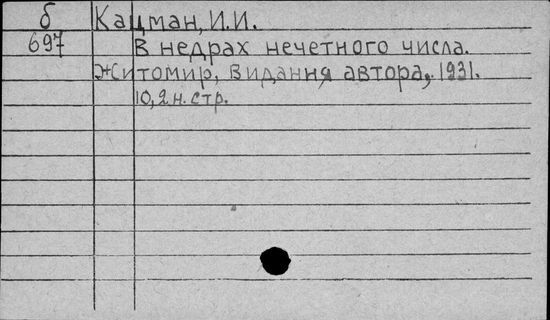 б Кацман, И.И.
697 В недрах нечетного числа.
Житомир, видання автора, 1931.
10, 2 н. стр.